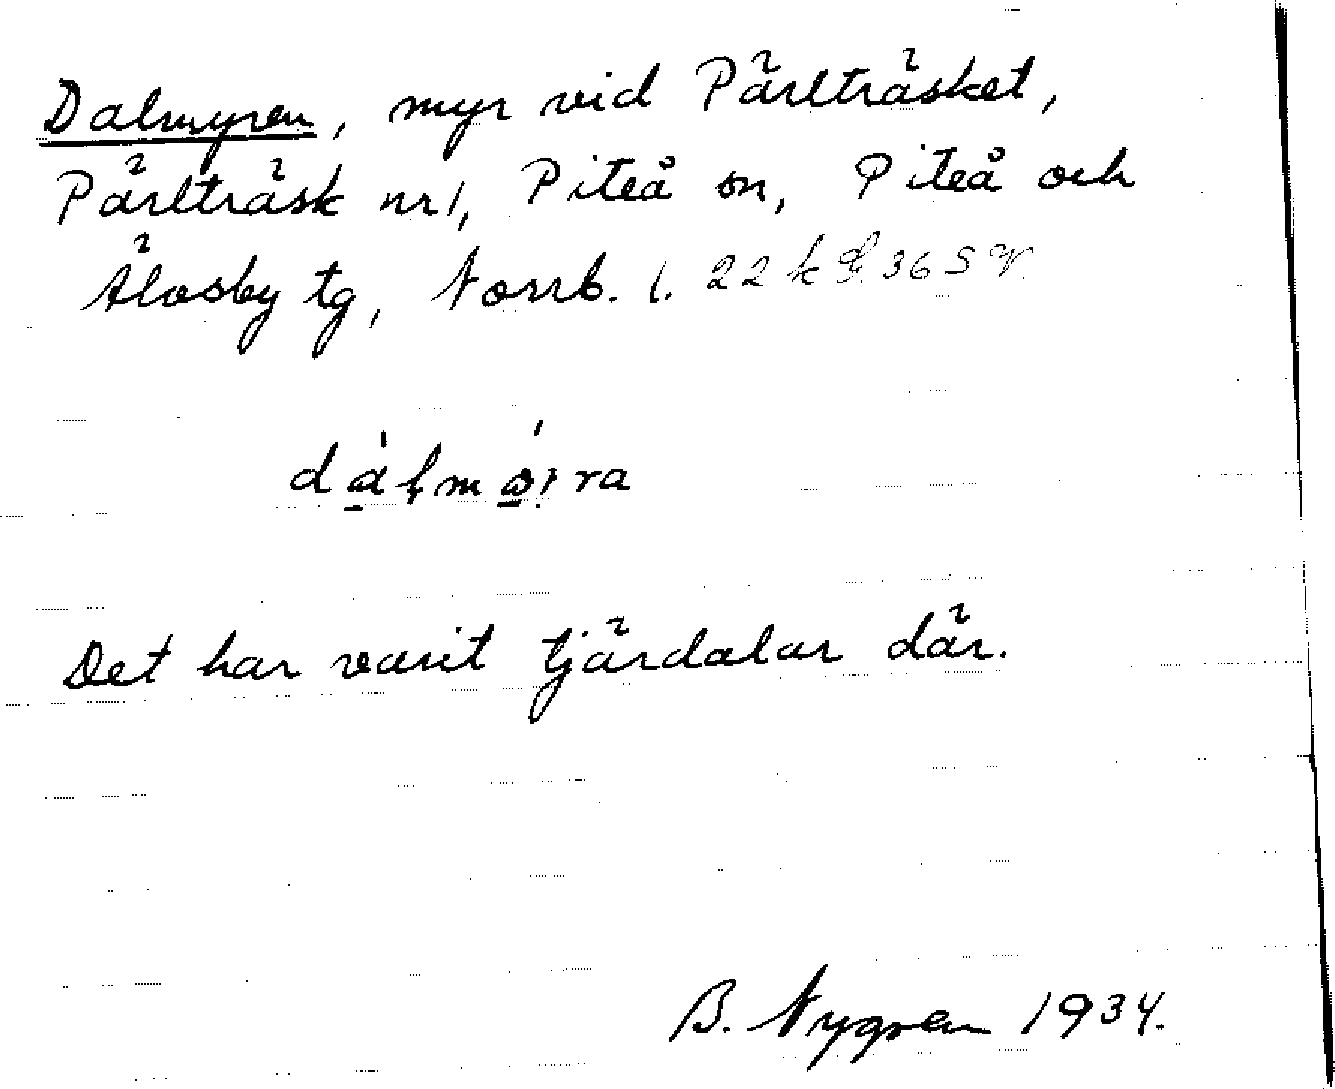 Dalmyren, myr vid Pärlträsket,
Pärlträsk nr 1, Piteå sn, Piteå och
Älvsby tg, Norrb. l. 22 k
Det har varit tjärdalar där.
B. Nygren 1934.